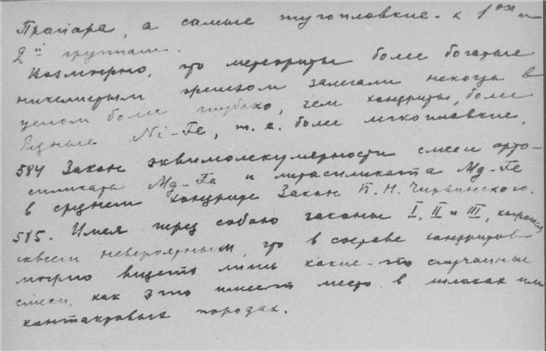 Прайара, а самые тугоплавкие - к 1ой и
2ой группам.
Возможно, что метеориты более богатые
никелистым железом залегали некогда в
целом более глубоко, чем хондриты, более
бедные Ni-Fe, т. е. более легкоплавкие.
584 Закон эквимолекулярности смеси орто-
силиката Mg-Fe и метасиликата Mg-Fe
в среднем хондрите Закон П. Н. Чирвинского.
585. Имея перед собою законы I, II и III,
совсем невероятным, что в составе хондритов
можно видеть лишь какие-то случайные
смеси, как это имеет место в шлаках или
контактовых породах.